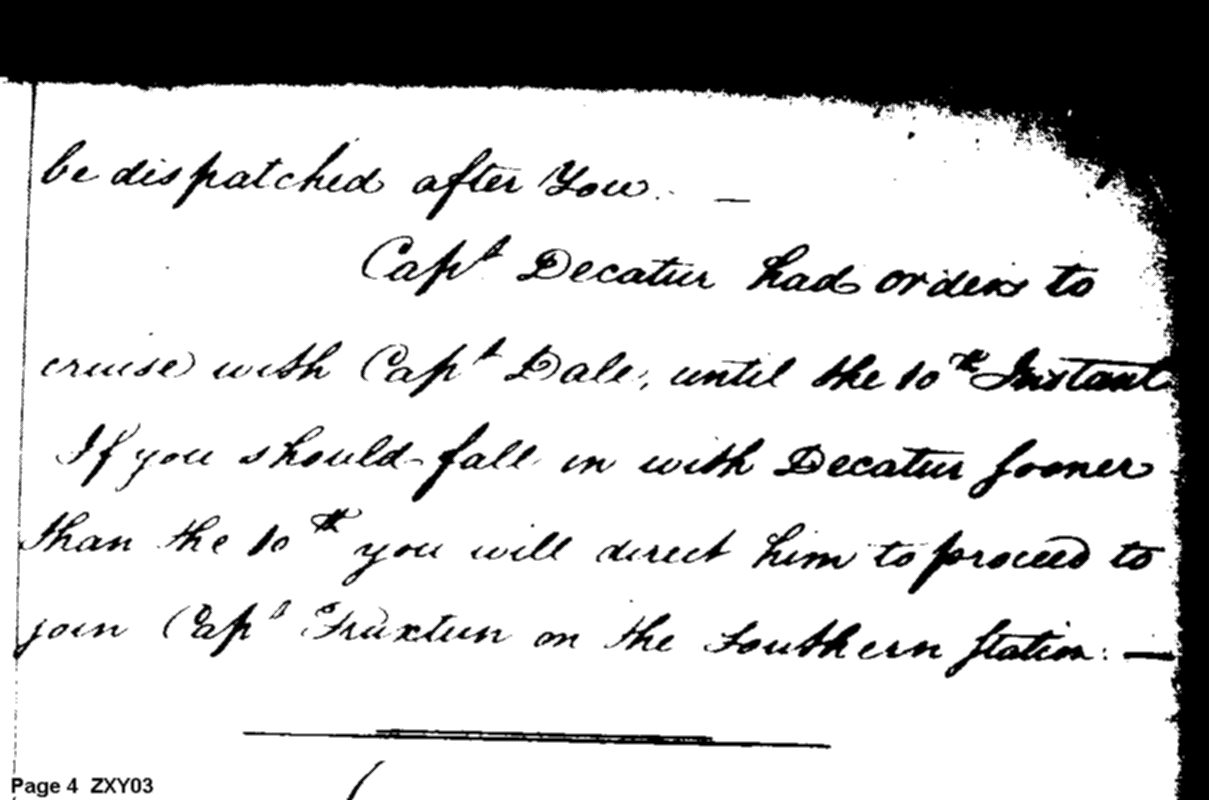 be dispatched after You. —
Capt Decatur had orders to
cruise with Capt Dale, until the 10th Instant
If you should fall in with Decatur sooner
than the 10th you will direct him to proceed to
join Capt Truxtun on the Southern Station. —
Page 4 ZXY03